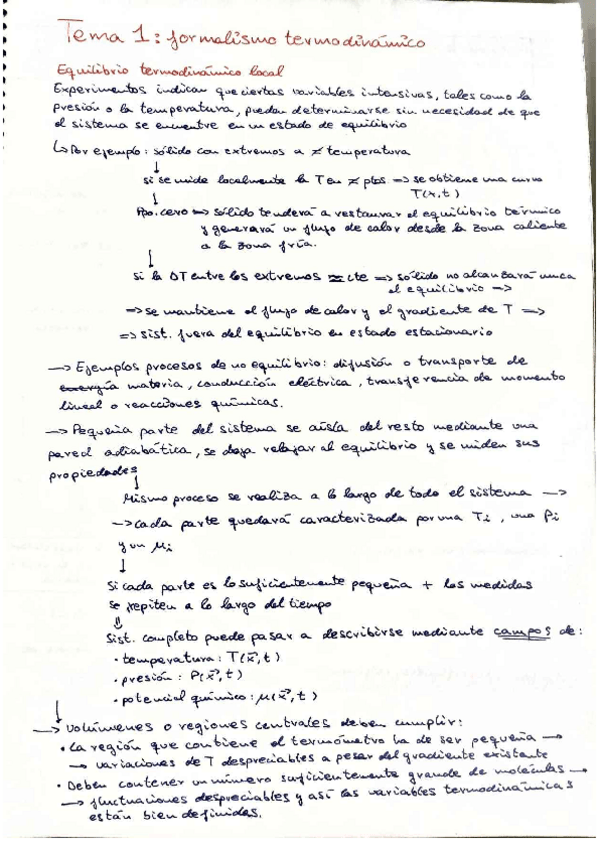 Tema 1: formalismo termodinámico
Equilibrio termodinámico local
Experimentos indican que ciertas variables intensivas, tales como la
presión o la temperatura, puedan determinarse sin necesidad de que
el sistema se encuentre en un estado de equilibrio
↳ Por ejemplo: sólido con extremos a ≠ temperatura
↓
si se mide localmente la T en ≠ ptos ⇒ se obtiene una curva
T(x,t)
↓
Ppo. cero ⇒ sólido tenderá a restaurar el equilibrio térmico
y generará un flujo de calor desde la zona caliente
a la zona fría.
↓
si la ΔT entre los extremos ≈ cte ⇒ sólido no alcanzará nunca
el equilibrio ⇒
⇒ se mantiene el flujo de calor y el gradiente de T ⇒
⇒ sist. fuera del equilibrio en estado estacionario
→ Ejemplos procesos de no equilibrio: difusión o transporte de
energía materia, conducción eléctrica, transferencia de momento
lineal o reacciones químicas.
→ Pequeña parte del sistema se aísla del resto mediante una
pared adiabática, se deja relajar al equilibrio y se miden sus
propiedades
↓
Mismo proceso se realiza a lo largo de todo el sistema →
→ cada parte quedará caracterizada por una Ti, una Pi
y un μi
↓
Si cada parte es lo suficientemente pequeña + las medidas
se repiten a lo largo del tiempo
⇓
Sist. completo puede pasar a describirse mediante campos de:
· temperatura: T(x⃗,t)
· presión: P(x⃗,t)
· potencial químico: μ(x⃗,t)
↓
→ Volúmenes o regiones centrales deben cumplir:
· La región que contiene el termómetro ha de ser pequeña →
→ variaciones de T despreciables a pesar del gradiente existente
· Deben contener un número suficientemente grande de moléculas →
→ fluctuaciones despreciables y así las variables termodinámicas
están bien definidas.